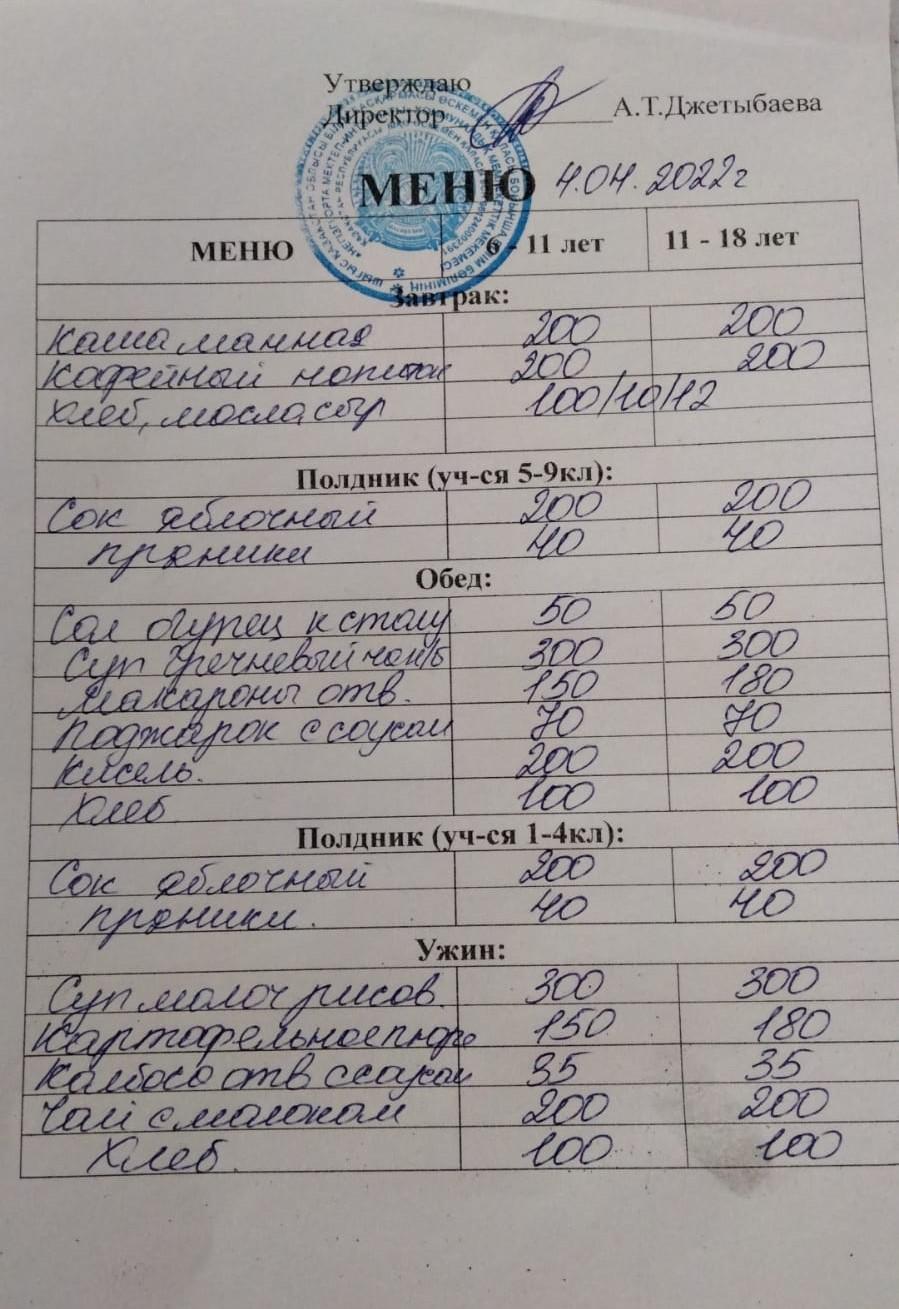 Утверждаю
Директор ________ А.Т.Джетыбаева
МЕНЮ 4.04.2022г
МЕНЮ 6 - 11 лет 11 - 18 лет
Завтрак:
Каша манная 200 200
Кофейный напиток 200 200
Хлеб, масла, сыр 100/10/12
Полдник (уч-ся 5-9кл):
Сок яблочный 200 200
пряники 40 40
Обед:
Сол огурец к столу 50 50
Суп гречневый 300 300
Макароны отв. 150 180
Поджарок с соусом 70 70
Кисель. 200 200
Хлеб 100 100
Полдник (уч-ся 1-4кл):
Сок яблочный 200 200
пряники. 40 40
Ужин:
Суп молоч рисов. 300 300
Картофельное пюре 150 180
Колбаса отв с соусом 35 35
Чай с молоком 200 200
Хлеб. 100 100